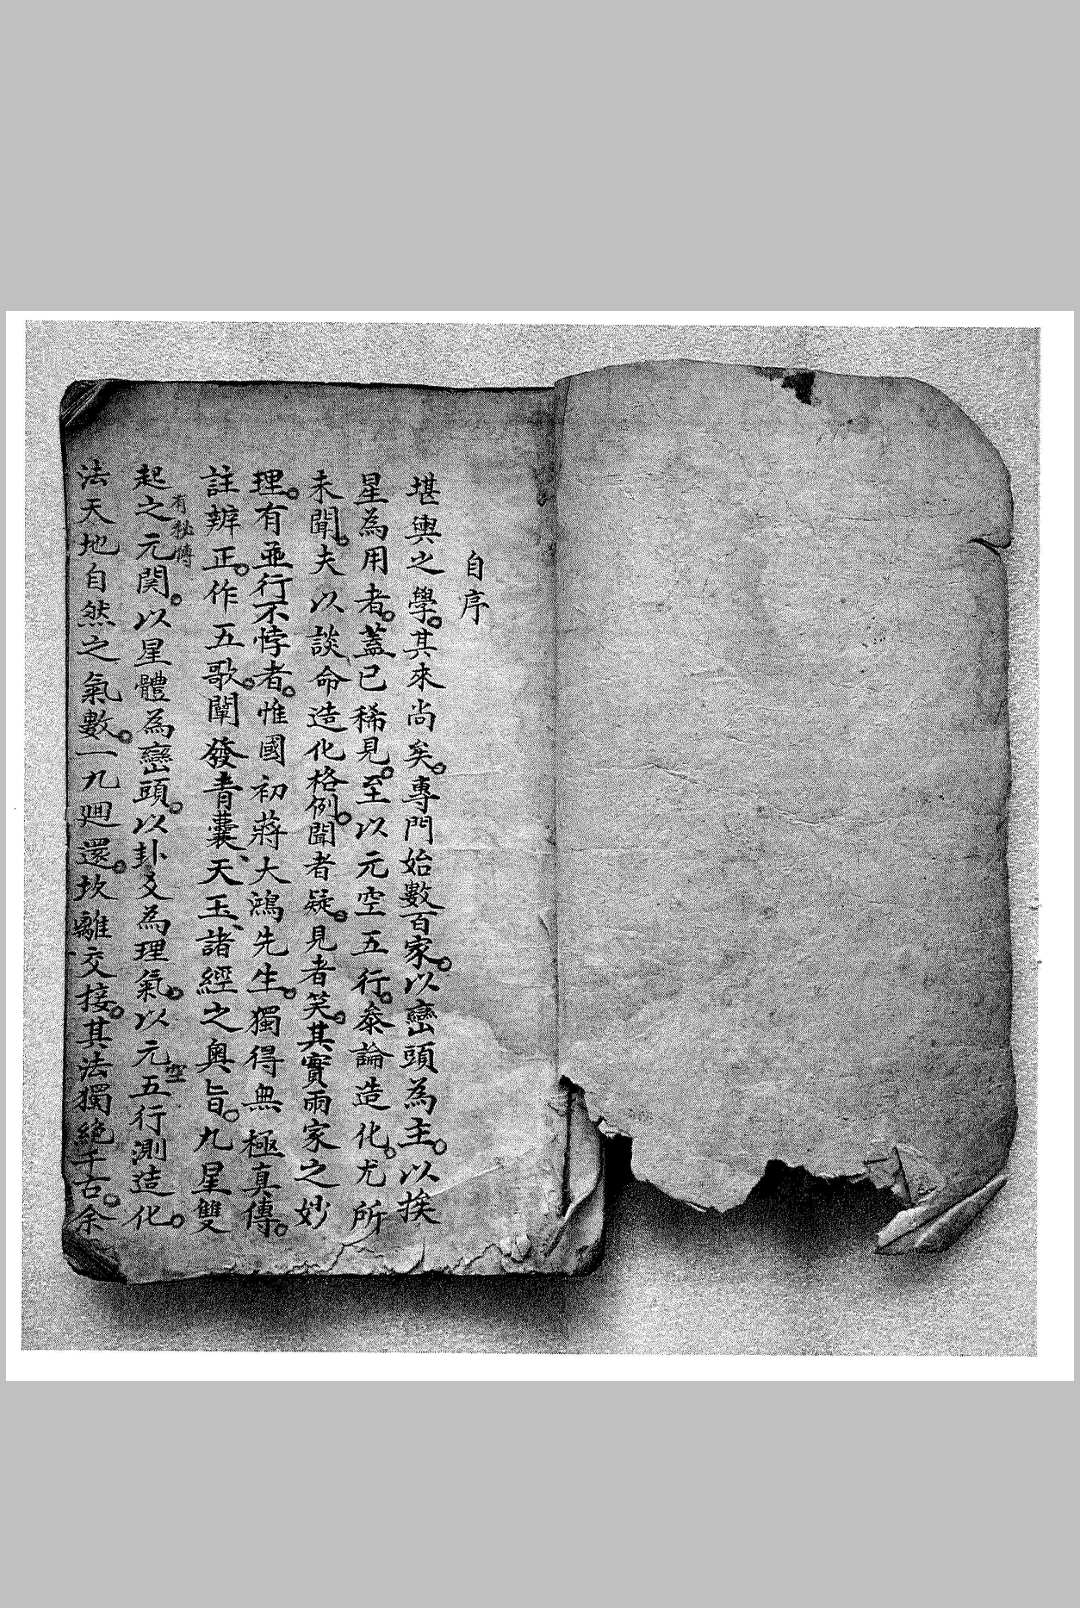 自序
堪輿之學。其來尚矣。專門始數百家。以巒頭為主。以挨
星為用者。蓋已稀見。至以元空五行。泰論造化。尤所
未聞。夫以談命造化格例。聞者疑。見者笑。其實兩家之妙
理。有並行不悖者。惟國初蔣大鴻先生。獨得無極真傳。
註辨正。作五歌。闡發青囊、天玉、諸經之奧旨。九星雙
起之元関。以星體為巒頭。以卦爻為理氣。以元空五行測造化。
有秘傳
法天地自然之氣數。一九廻還。坎離交接。其法獨絕千古。余